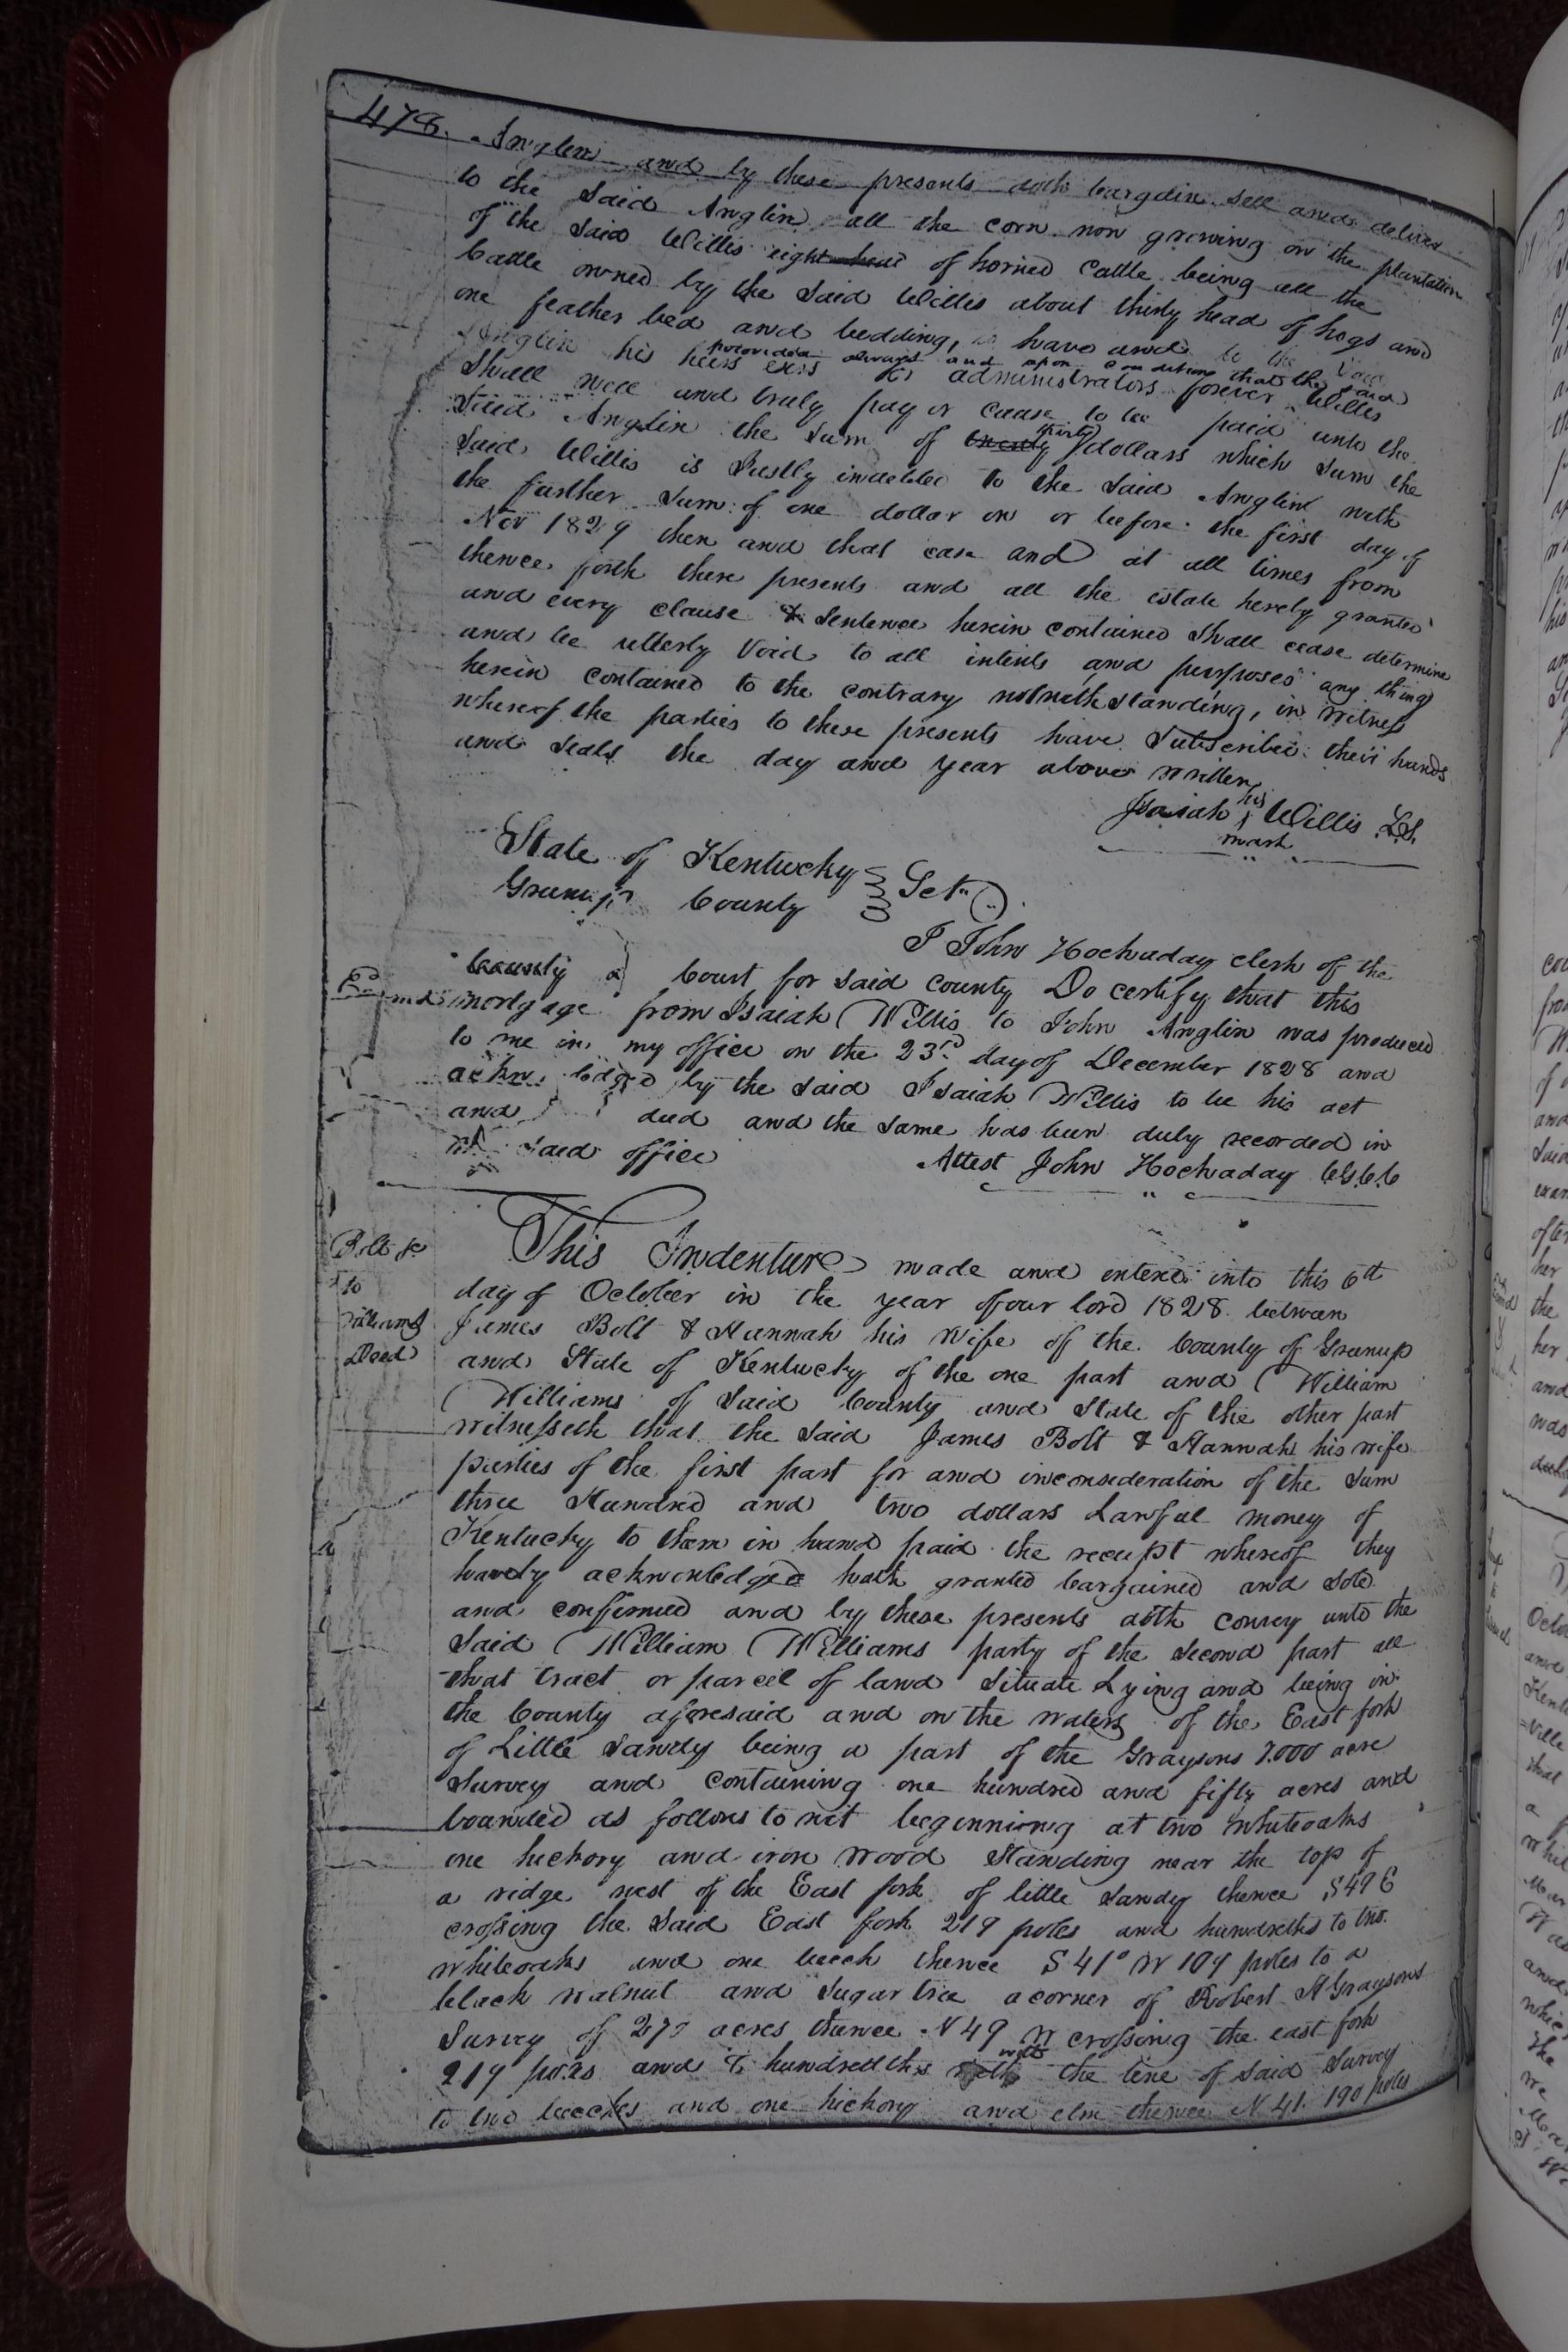 478.
Anglin and by these presents doth bargain sell and deliver
to the said Anglin all the corn now growing on the plantation
of the said Willis eight head of horned cattle being all the
Cattle owned by the said Willis about thirty head of hogs and
one feather bed and bedding, to have and to the said
Anglin his heirs exrs & administrators forever
provided always and upon condition that the said Willis
Shall well and truly pay or cause to be paid unto the
Said Anglin the sum of twenty thirty dollars which sum the
Said Willis is Justly indebted to the said Anglin with
the further sum of one dollar on or before the first day of
Nov 1829 then and that case and at all times from
thence forth these presents and all the estate hereby granted
and every clause & sentence herein contained shall cease determine
and be utterly void to all intents and purposes any thing
herein contained to the contrary notwithstanding, in witness
whereof the parties to these presents have Subscribed their hands
and seals the day and year above written
Isaiah his Willis L.S.
mark
State of Kentucky
Greenup County Sct
I John Hockaday clerk of the
County Court for said county Do certify that this
mortgage from Isaiah Willis to John Anglin was produced
to me in my office on the 23rd day of December 1828 and
acknowledged by the said Isaiah Willis to be his act
and deed and the same has been duly recorded in
my said office
Attest John Hockaday C.G.C.C.
Bolt &c
to
Williams
Deed
This Indenture made and entered into this 6th
day of October in the year of our lord 1828 between
James Bolt & Hannah his Wife of the County of Greenup
and State of Kentucky of the one part and William
Williams of said County and State of the other part
witnesseth that the said James Bolt & Hannah his wife
parties of the first part for and inconsideration of the sum
three Hundred and two dollars Lawful money of
Kentucky to them in hand paid the receipt whereof they
hereby acknowledged hath granted bargained and sold
and confirmed and by these presents doth convey unto the
Said William Williams party of the second part all
that tract or parcel of land Situate Lying and being in
the County aforesaid and on the waters of the East fork
of Little Sandy being a part of the Graysons 7.000 acre
Survey and containing one hundred and fifty acres and
bounded as follows to wit beginning at two whiteoaks
one hickory and iron wood Standing near the top of
a ridge west of the East fork of little Sandy thence S 49 E
crossing the said East fork 219 poles and hundreths to two
whiteoaks and one beech thence S 41° W 109 poles to a
black walnut and Sugar tree a corner of Robert H Graysons
Survey of 270 acres thence N 49 W crossing the east fork
219 poles and hundredths with the line of said Survey
to two beeches and one hickory and elm thence N 41. 190 poles